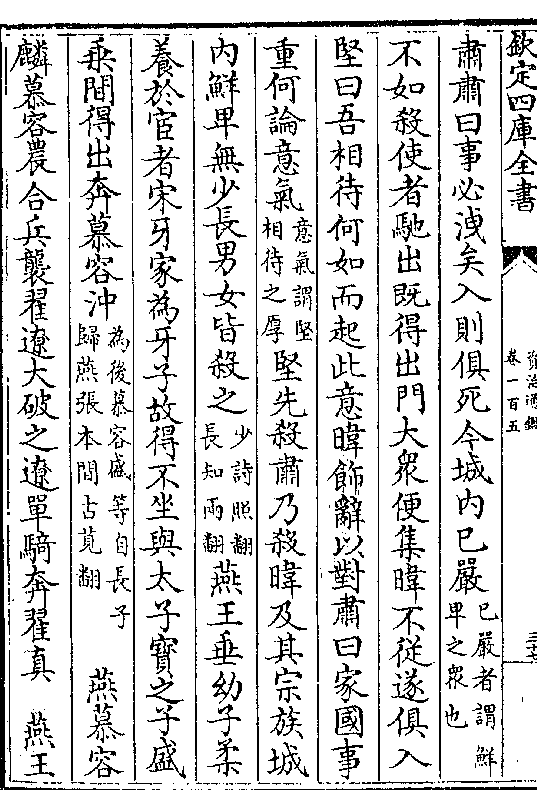 欽定四庫全書
資治通鑑
卷一百五
肅肅曰事必洩矣入則俱死今城内已嚴已嚴者謂鮮卑之衆也
不如殺使者馳出既得出門大衆便集暐不從遂俱入
堅曰吾相待何如而起此意暐飾辭以對肅曰家國事
重何論意氣意氣謂堅相待之厚堅先殺肅乃殺暐及其宗族城
内鮮卑無少長男女皆殺之少詩照翻長知兩翻燕王垂幼子柔
養於宦者宋牙家為牙子故得不坐與太子寶之子盛
乗間得出奔慕容沖為後慕容盛等自長子歸燕張本間古莧翻燕慕容
麟慕容農合兵襲翟遼大破之遼單騎奔翟真燕王